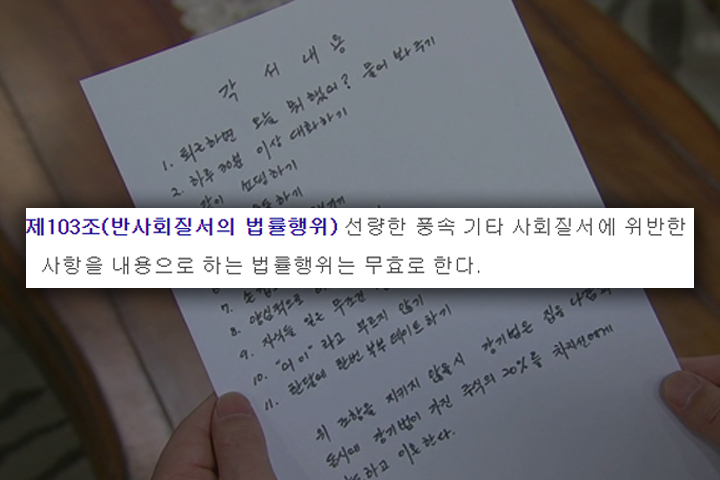 각서내용
1. 퇴근하면 오늘 뭐했어? 물어 봐주기
2. 하루 30분 이상 대화하기
같이 쇼핑하기
하기
제103조(반사회질서의 법률행위) 선량한 풍속 기타 사회질서에 위반한
사항을 내용으로 하는 법률행위는 무효로 한다.
7.
8. 양심적으로
9. 자식들 일은 무조건
10. "어이" 라고 부르지 않기
11. 한달에 한번 부부 데이트하기
위 조항을 지키지 않을시 강기범은 집을 나감과
동시에 강기범이 가진 주식의 20%를 최지선에게
하고 이혼한다.